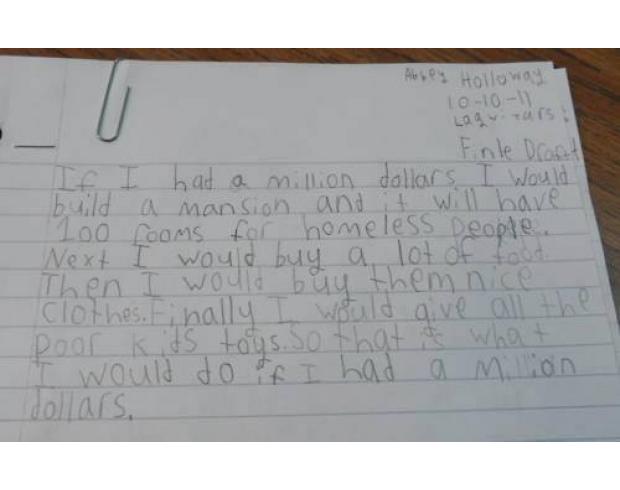 Abbey Holloway
10-10-11
Finle Draft
If I had a million dollars I would
build a mansion and it will have
100 rooms for homeless people.
Next I would buy a lot of food.
Then I would buy them nice
Clothes. Finally I would give all the
poor kids toys. So that is what
I would do if I had a million
dollars.